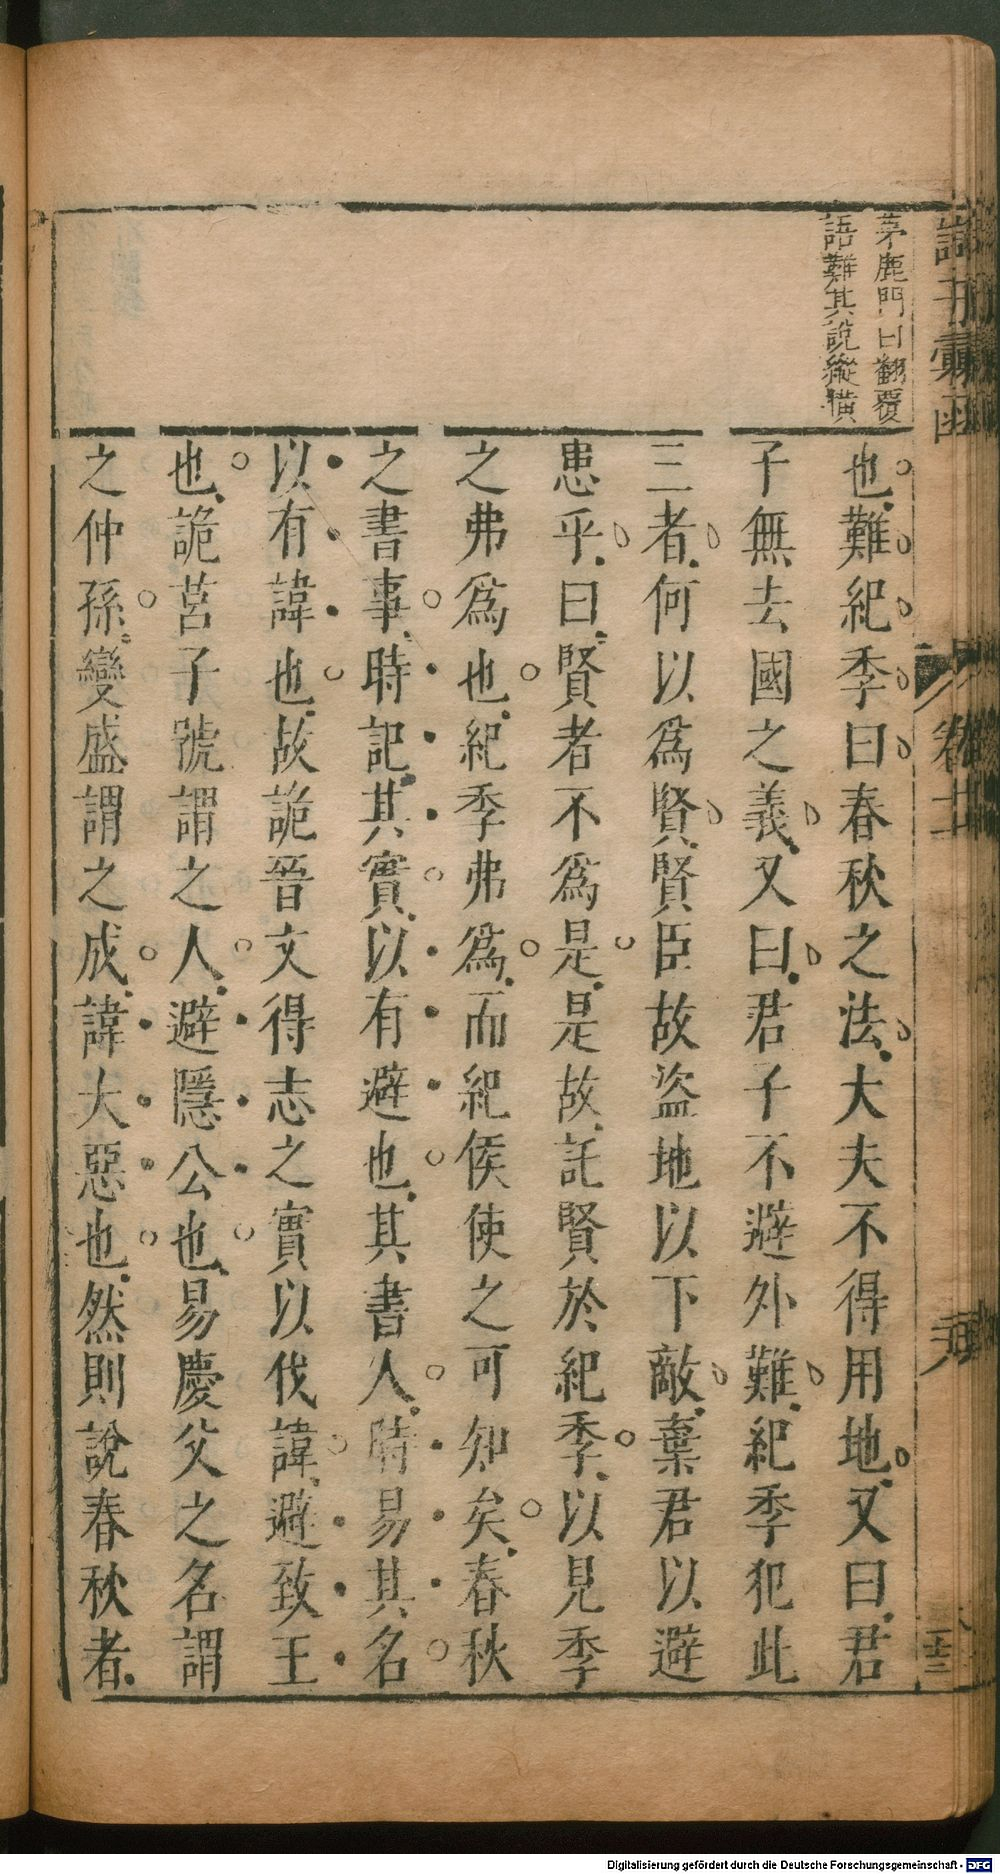 茅鹿門曰翻覆
語難其說縱橫
也難紀季曰春秋之法大夫不得用地又曰君
子無去國之義又曰君子不避外難紀季犯此
三者何以爲賢賢臣故盜地以下敵棄君以避
患乎曰賢者不爲是是故託賢於紀季以見季
之弗爲也紀季弗爲而紀侯使之可知矣春秋
之書事時記其實以有避也其書人時易其名
以有諱也故詭晉文得志之實以伐諱避致王
也詭莒子號謂之人避隱公也易慶父之名謂
之仲孫變盛謂之成諱大惡也然則說春秋者
Digitalisierung gefördert durch die Deutsche Forschungsgemeinschaft - DFG